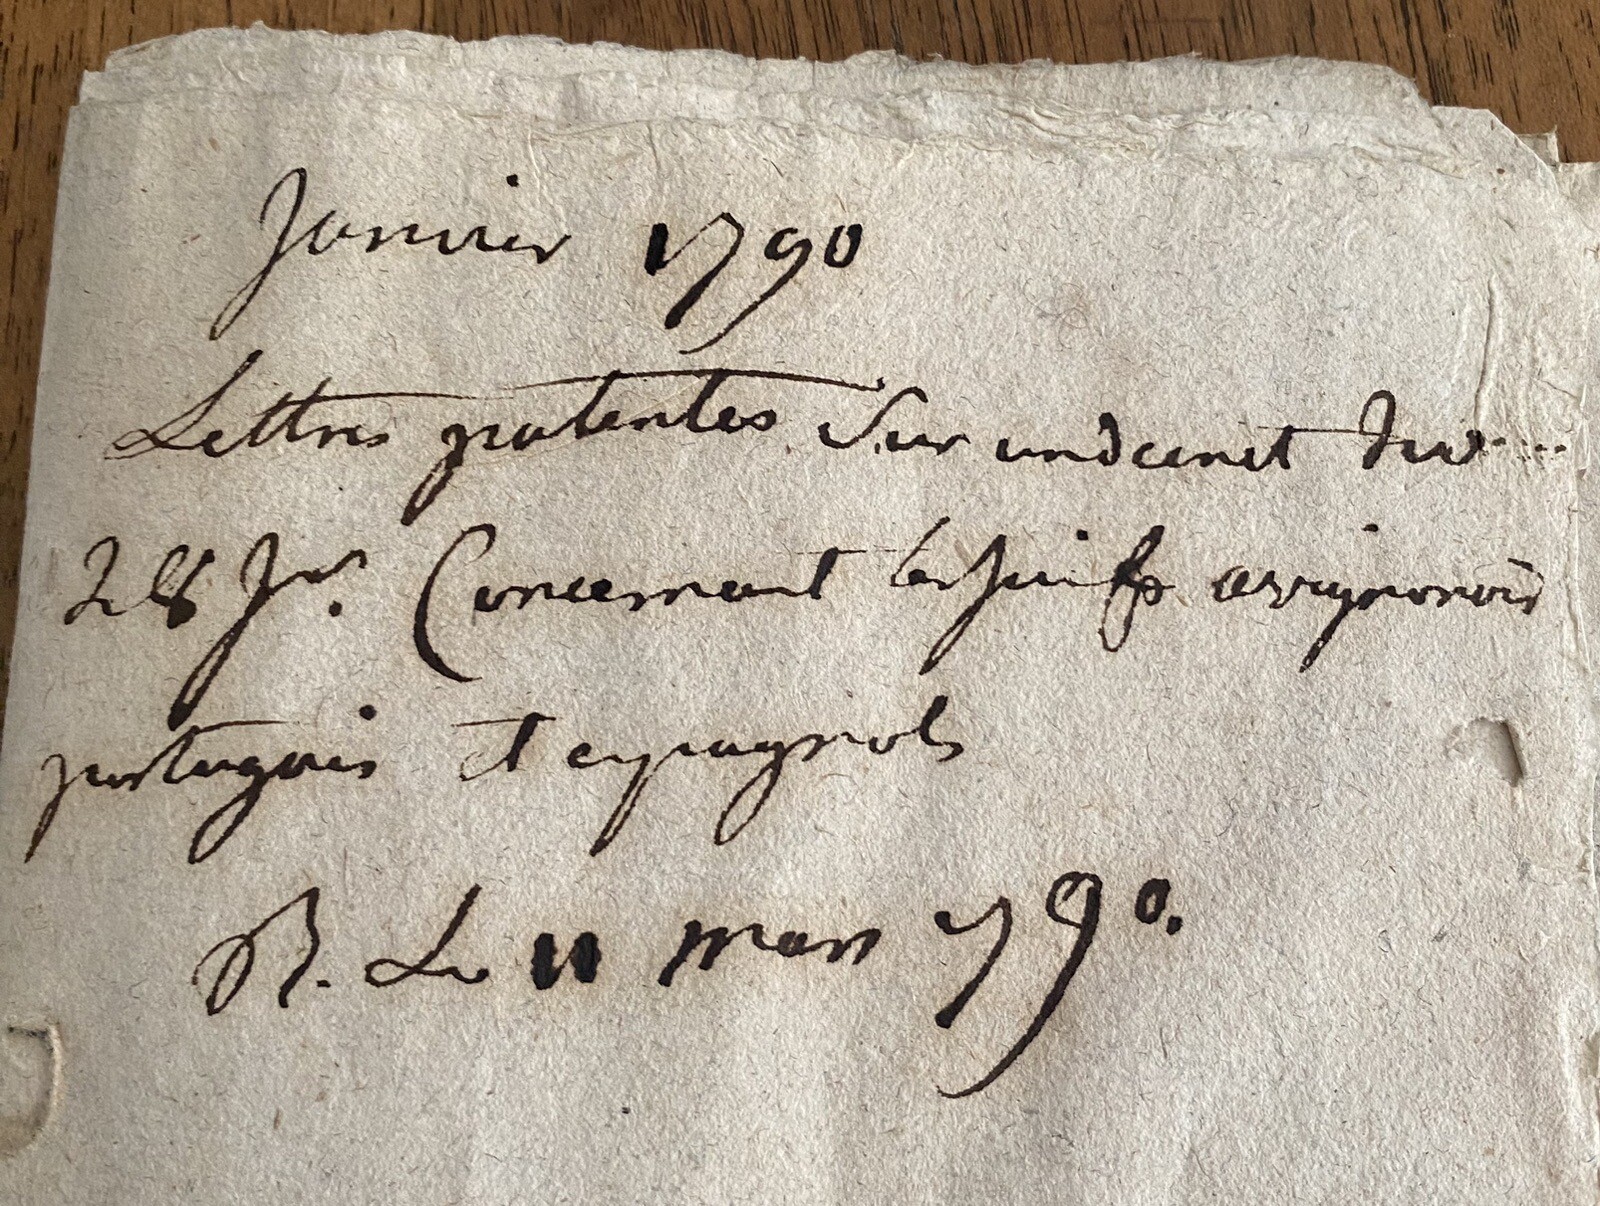 Janvier 1790
Lettres patentes Sur undecret du....
28 Jer. Concernant les juifs avignonois
portugais et espagnols
R. Le 11 mars 1790.